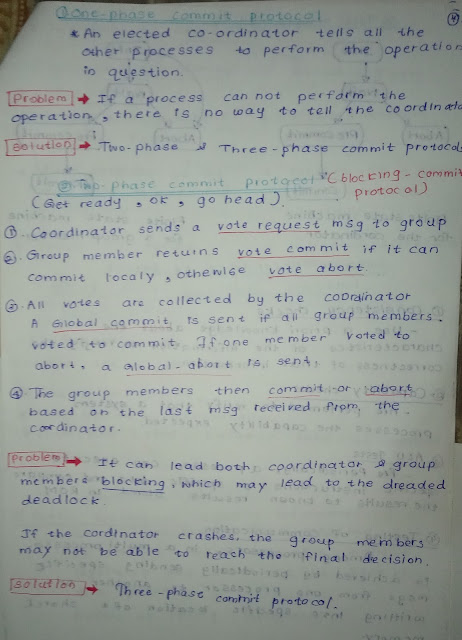 ① One-phase commit protocol
* An elected co-ordinator tells all the
other processes to perform the operation
in question.
Problem → If a process can not perform the
operation, there is no way to tell the coordinato
Solution → Two-phase & Three-phase commit protocols
② Two-phase commit protocol (blocking-commit
(Get ready, ok, go head). protocol)
① Coordinator sends a vote request msg to group
② Group member returns vote commit if it can
commit localy, otherwise vote abort.
③ All votes are collected by the coordinator
A Global commit is sent if all group members
voted to commit. If one member voted to
abort, a global-abort is sent.
④ The group members then commit or abort
based on the last msg received from the
coordinator.
Problem → It can lead both coordinator & group
members blocking, which may lead to the dreaded
deadlock.
If the cordinator crashes, the group members
may not be able to reach the final decision.
Solution → Three-phase commit protocol.